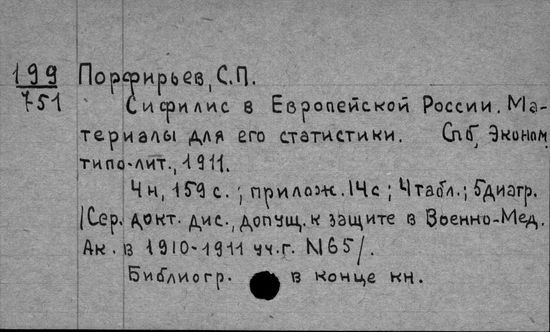 199 Порфирьев, С.П.
751 Сифилис в Европейской России. Ма-
териалы для его статистики. Спб, Эконом.
типо-лит., 1911.
4н, 159 с.; прилож. 14с; 4 табл.; 5 диагр.
/Сер. докт. дис., допущ. к защите в Военно-Мед.
Ак. в 1910-1911 уч.г. N65/.
Библиогр. в конце кн.